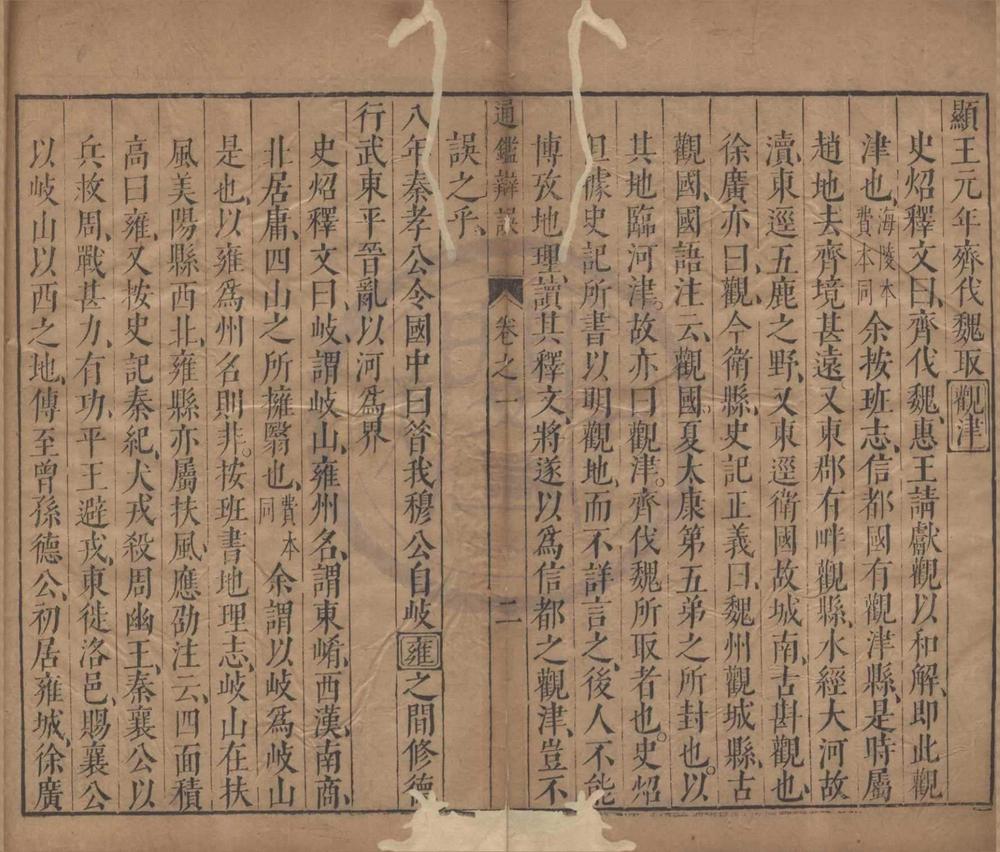 顯王元年齊伐魏取觀津
史炤釋文曰齊伐魏惠王請獻觀以和解即此觀
津也海陵本費本同余按班志信都國有觀津縣是時屬
趙地去齊境甚遠又東郡有畔觀縣水經大河故
瀆東逕五鹿之野又東逕衛國故城南古斟觀也
徐廣亦曰觀今衛縣史記正義曰魏州觀城縣古
觀國國語注云觀國夏太康第五弟之所封也以
其地臨河津故亦曰觀津齊伐魏所取者也史炤
但據史記所書以明觀地而不詳言之後人不能
博攷地理讀其釋文將遂以爲信都之觀津豈不
通鑑辯誤 卷之一 二
誤之乎
八年秦孝公令國中曰昔我穆公自岐雍之間修德
行武東平晉亂以河爲界
史炤釋文曰岐謂岐山雍州名謂東崤西漢南商
北居庸四山之所擁翳也費本同余謂以岐爲岐山
是也以雍爲州名則非按班書地理志岐山在扶
風美陽縣西北雍縣亦屬扶風應劭注云四面積
高曰雍又按史記秦紀犬戎殺周幽王秦襄公以
兵救周戰甚力有功平王避戎東徙洛邑賜襄公
以岐山以西之地傳至曾孫德公初居雍城徐廣